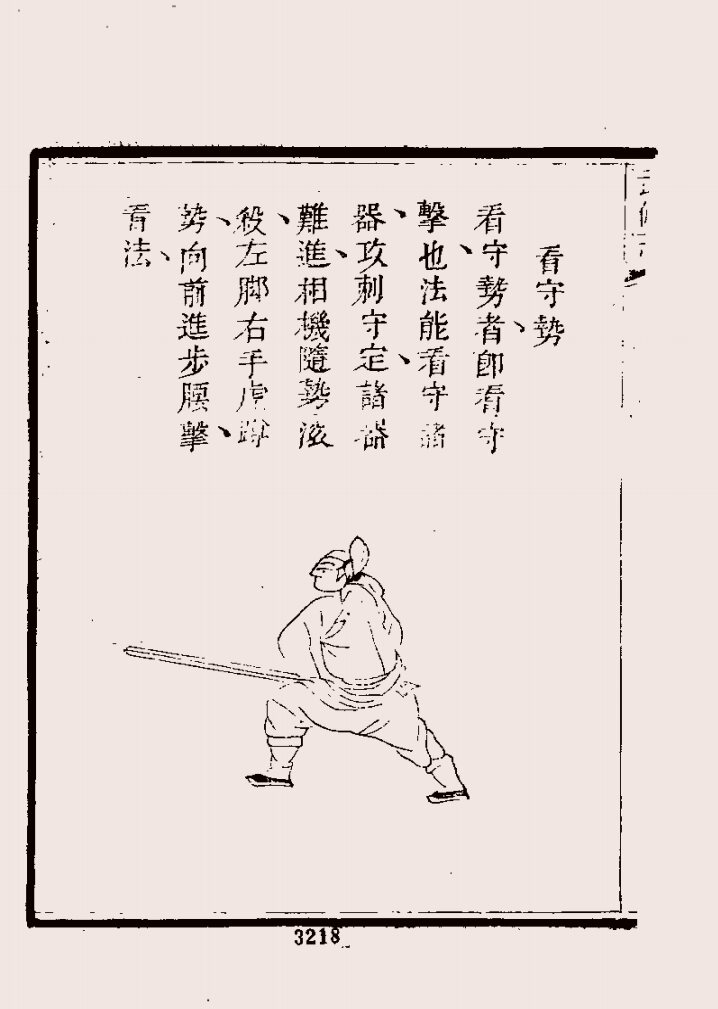 看守勢
看守勢者即看守
擊也法能看守諸
器攻刺守定諸器
難進相機隨勢滚
殺左脚右手虎蹲
勢向前進步腰擊
看法
3218